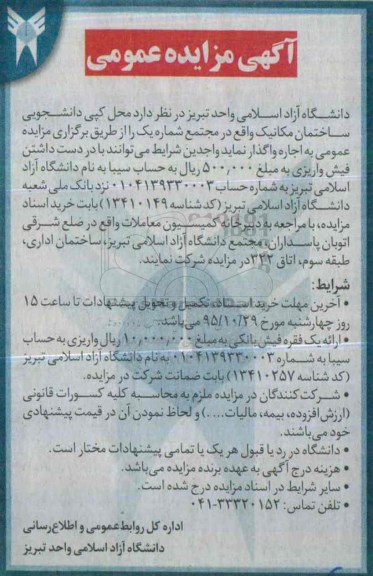 آگهی مزایده عمومی
دانشگاه آزاد اسلامی واحد تبریز در نظر دارد محل کپی دانشجویی
ساختمان مکانیک واقع در مجتمع شماره یک را از طریق برگزاری مزایده
عمومی به اجاره واگذار نماید واجدین شرایط می‌توانند با در دست داشتن
فیش واریزی به مبلغ ۵۰۰,۰۰۰ ریال به حساب سیبا به نام دانشگاه آزاد
اسلامی تبریز به شماره حساب ۰۱۰۴۱۳۹۳۳۰۰۰۳ نزد بانک ملی شعبه
دانشگاه آزاد اسلامی تبریز (کد شناسه ۱۳۴۱۰۱۴۹) بابت خرید اسناد
مزایده، با مراجعه به دبیرخانه کمیسیون معاملات واقع در ضلع شرقی
اتوبان پاسداران، مجتمع دانشگاه آزاد اسلامی تبریز، ساختمان اداری،
طبقه سوم، اتاق ۳۲۲ در مزایده شرکت نمایند.
شرایط:
• آخرین مهلت خرید اسناد، تکمیل و تحویل پیشنهادات تا ساعت ۱۵
روز چهارشنبه مورخ ۹۵/۱۰/۲۹ می‌باشد.
• ارائه یک فقره فیش بانکی به مبلغ ۱۰,۰۰۰,۰۰۰ ریال واریزی به حساب
سیبا به شماره ۰۱۰۴۱۳۹۳۳۰۰۰۳ به نام دانشگاه آزاد اسلامی تبریز
(کد شناسه ۱۳۴۱۰۲۵۷) بابت ضمانت شرکت در مزایده.
• شرکت کنندگان در مزایده ملزم به محاسبه کلیه کسورات قانونی
(ارزش افزوده، بیمه، مالیات....) و لحاظ نمودن آن در قیمت پیشنهادی
خود می‌باشند.
• دانشگاه در رد یا قبول هر یک یا تمامی پیشنهادات مختار است.
• هزینه درج آگهی به عهده برنده مزایده می‌باشد.
• سایر شرایط در اسناد مزایده درج شده است.
• تلفن تماس: ۳۳۳۲۰۱۵۲-۰۴۱
اداره کل روابط عمومی و اطلاع‌رسانی
دانشگاه آزاد اسلامی واحد تبریز